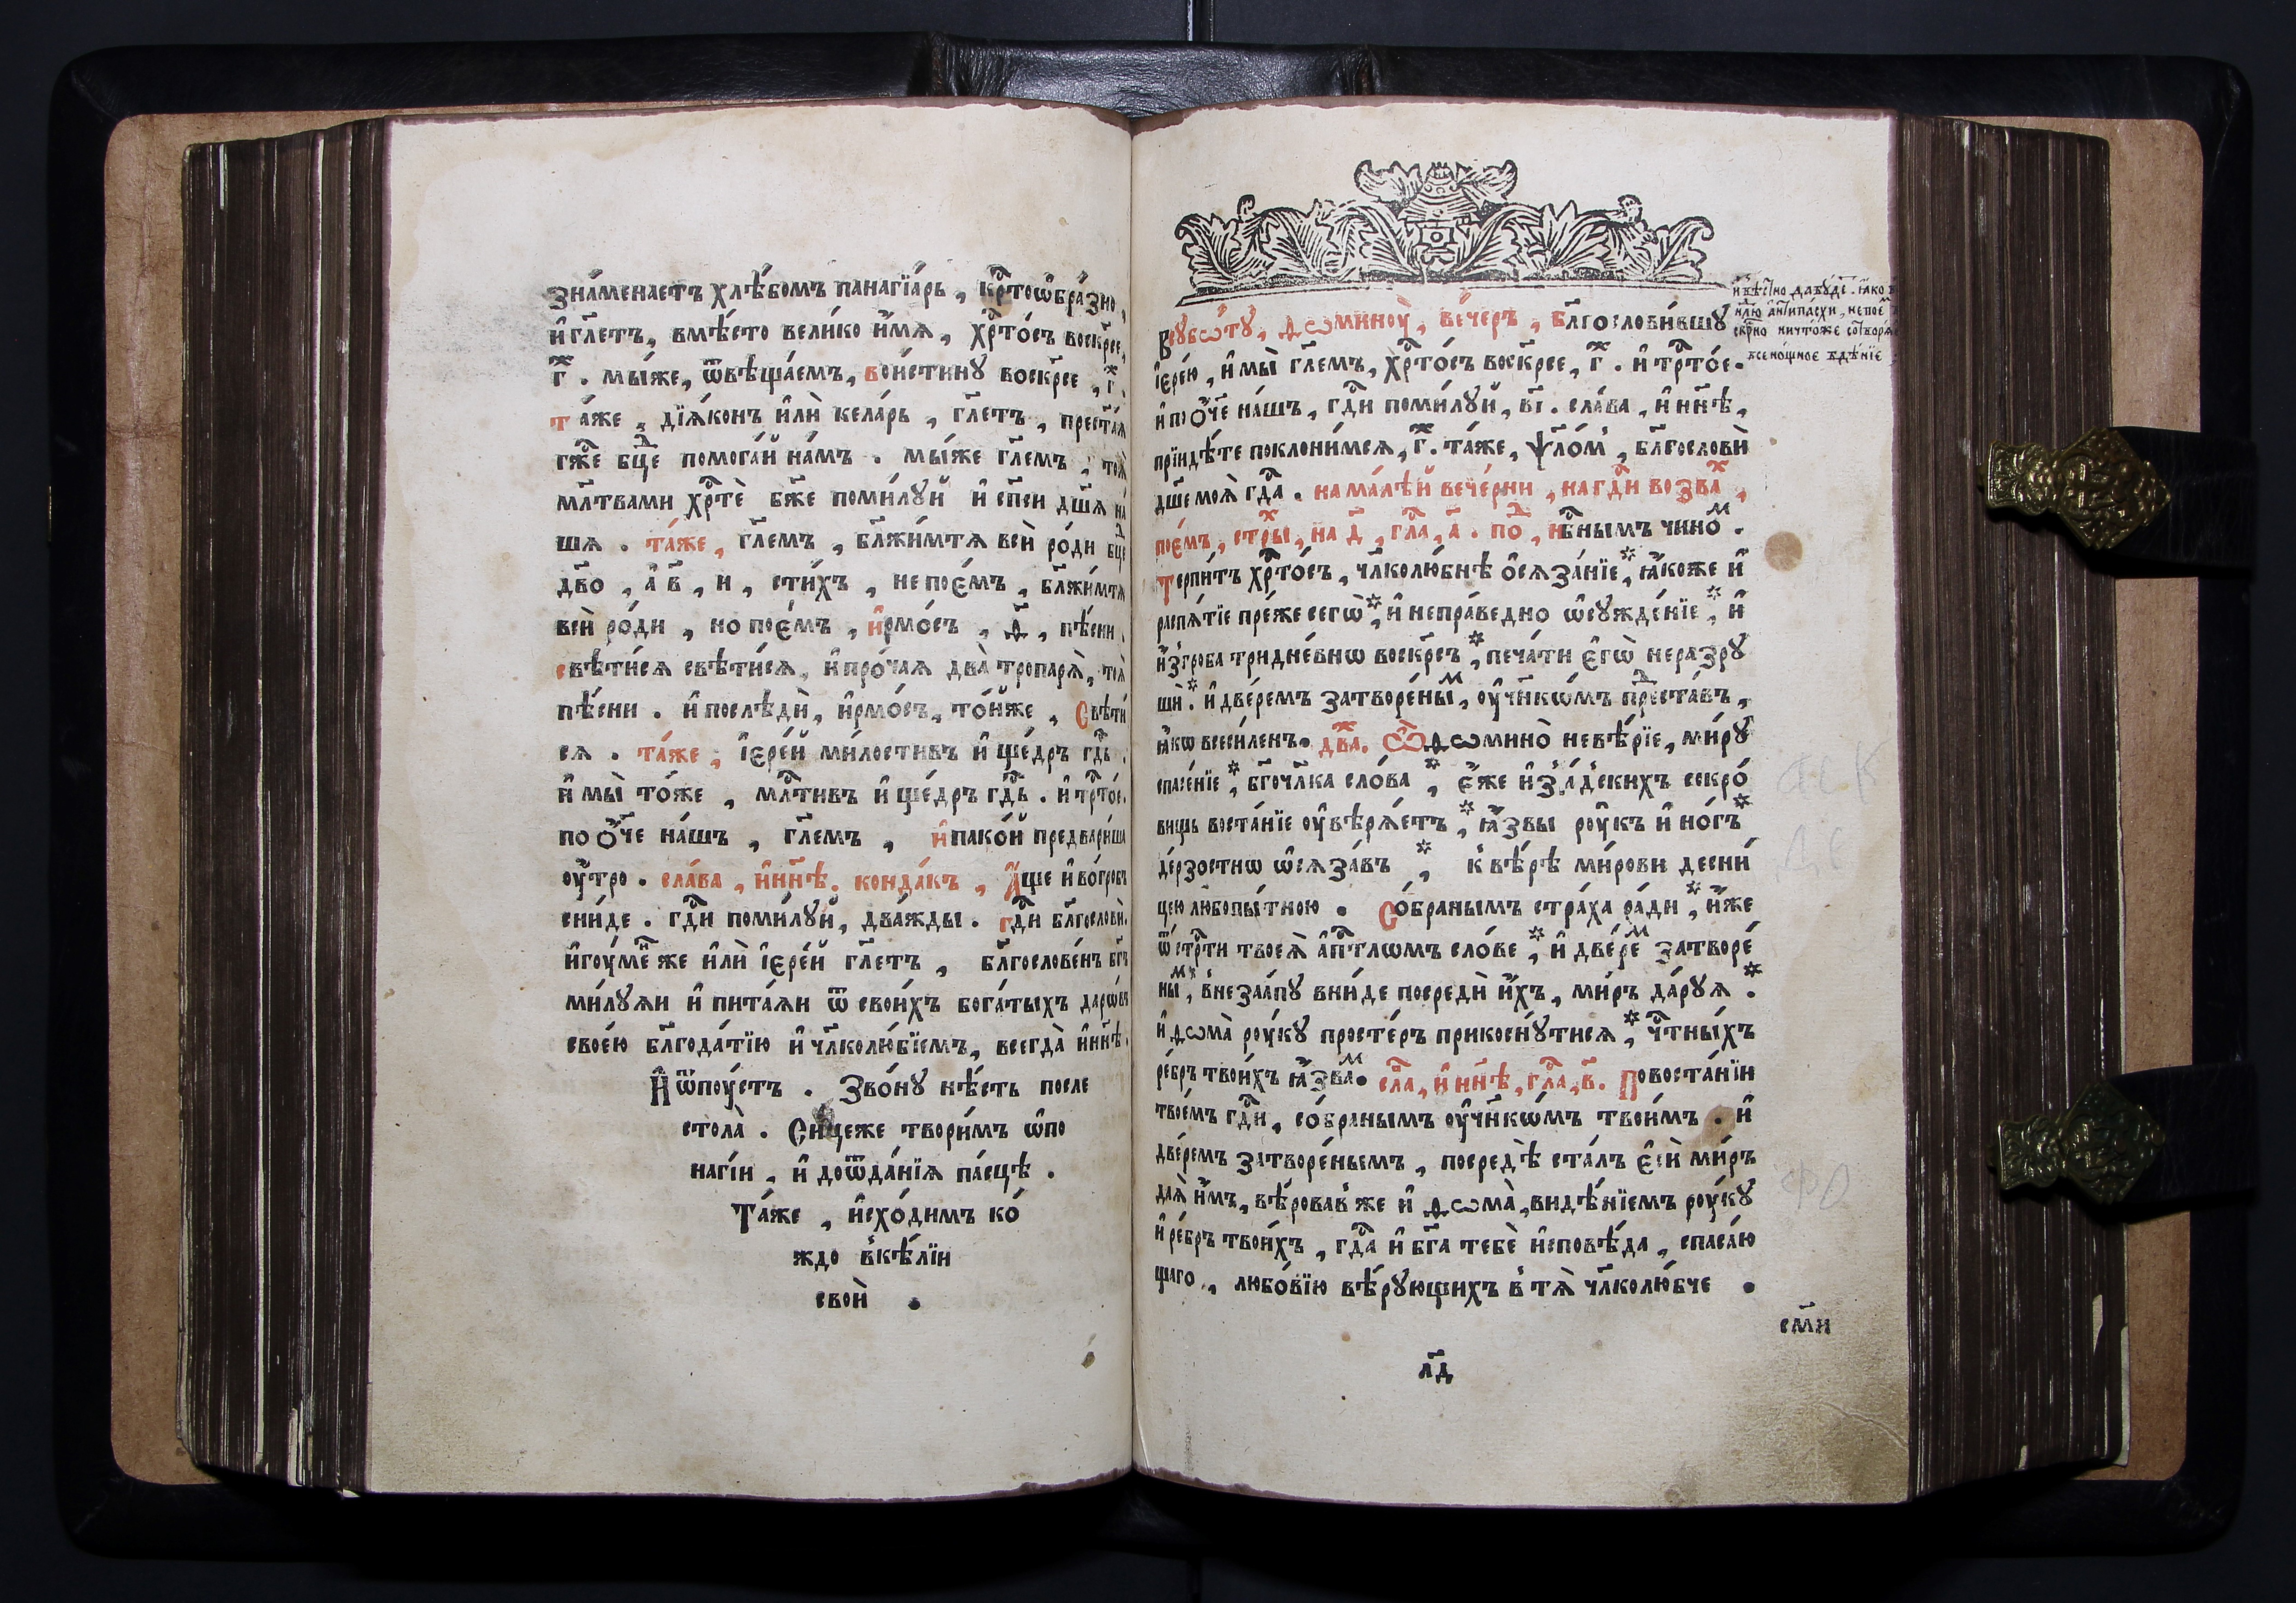 зна́менаетъ хлѣ́бомъ панагїа́рь , кр҇тоѡбра́зно ,
и҆ гл҃етъ , вмѣ́сто вели́ко и҆́мя , хр҇то́съ воскр҃се ,
г҃ . мы́же , ѿвѣща́емъ , вои́стинꙋ воскр҃се , г҃ .
та́же , дїя́конъ и҆лѝ кела́рь , гл҃етъ , прест҃а́я
гж҇е бц҃е помога́й на́мъ . мы́же гл҃емъ , тоя̀
мл҃твами хр҇тѐ бж҃е поми́лꙋй и҆ сп҃си дш҃я на́
шя . та́же , гл҃емъ , бл҃жи́мтя всѝ ро́ди бц҃е
дв҃о , а҆ в҃ , и , сти́хъ , не пое́мъ , бл҃жи́мтя
всѝ ро́ди , но пое́мъ , и҆рмо́съ , ѳ҃ , пѣ́сни .
свѣти́ся свѣти́ся , и҆ про́чая два̀ тропаря̀ , тоя̀
пѣ́сни . и҆ послѣдѝ , и҆рмо́съ , то́йже , Свѣти́
ся . та́же , і҆ере́й ми́лостивъ и҆ ще́дръ гд҇ь .
и҆ мы̀ то́же , мл҇тивъ и҆ ще́дръ гд҇ь . и҆ тр҇то́е .
по ѻ҆́ч҃е на́шъ , гл҃емъ , и҆пакои̇̀ предвари́ша
ѹ҆́тро . сла́ва , и҆ ны́нѣ . конда́къ , А҆́ще и҆ во́гробъ
сни́де . гд҇и поми́лꙋй , два́жды . гд҇и бл҃гословѝ .
и҆гꙋ́менже и҆лѝ і҆ере́й гл҃етъ , бл҃гослове́нъ бг҃ъ
ми́лꙋяи и҆ пита́яи ѿ свои́хъ бога́тыхъ даро́въ
свое́ю бл҃года́тїю и҆ чл҃колю́бїемъ , всегда̀ и҆ нн҃ѣ .
И҆ ѿпꙋ́стъ . Зво́нꙋ нѣ́сть после
стола̀ . Си́цеже твори́мъ ѡ҆по
наги́и , и҆ доѿда́нїя па́сцѣ .
Та́же , и҆схо́димъ ко́
ждо в̾кѣ́лїи
свои̇̀ .
и҆звѣ́стно да бꙋ́де . я҆́ко в
нл҃ю а҆нтипа́схи , не пое́
скр҃бно ничто́же сотворя́
всено́щное бдѣ́нїе
Всꙋббѡ́тꙋ , Ѳѡминꙋ̀ , ве́черъ , бл҃гослови́вшꙋ
і҆ере́ю , и҆ мы̀ гл҃емъ , хр҇то́съ воскр҃се , г҃ . и҆ тр҇то́е .
и҆ по ѻ҆́ч҃е на́шъ , гд҇и поми́лꙋй , в҃і . сла́ва , и҆ нн҃ѣ ,
прїидѣ́те поклони́мся , г҃ . та́же , ѱл҃о́мъ , бл҃гословѝ
дш҃е моя̀ гд҇а . на ма́лѣй вече́рни , на гд҇и возва́ ,
пое́мъ , стр҃ы̀ , на д҃ , гл҇а , а҃ . по́д , нб҃нымъ чино́м .
Терпи́тъ хр҇то́съ , чл҃колю́бнѣ ѻ҆сяза́нїе , ꙗ҆́коже и҆
распя́тїе пре́же сегѡ̀ , и҆ непра́ведно ѡ҆сꙋжде́нїе , и҆
и҆з̾гроба тридне́внѡ воскр҃съ , печа́ти є҆гѡ̀ неразрꙋ
ши̇̀ . и҆ две́ремъ затворе́ным , ѹ҆чн҃кѡ́мъ предста́въ ,
ꙗ҆́кѡ всеси́ленъ . дв҃а . Ѿ Ѳѡмино̀ невѣ́рїе , ми́рꙋ
спасе́нїе , бг҃очл҃ка сло́ва , є҆́же и҆з̾ а́дскихъ сокро́
вищь воста́нїе ѹ҆вѣря́етъ , ꙗ҆́звы рꙋ́къ и҆ но́гъ
де́рзостнѡ ѡ҆сяза́въ , к̾ вѣ́рѣ ми́рови десни́
цею любопы́тною . Со́бранымъ стра́ха ра́ди , и҆́же
ѿ стр҇ти твоея̀ а҆п҇тлѡмъ сло́ве , и҆ две́рем затворе́
ным , в̾незаа́пꙋ вни́де посредѝ и҆́хъ , ми́ръ да́рꙋя .
и҆ ѳѡма̀ рꙋ́кꙋ просте́ръ прикоснꙋ́тися , ч҇тны́хъ
ре́бръ твои́хъ ꙗ҆́звам . сл҇а , и҆ нн҃ѣ , гл҇а , в҃ . По воста́нїи
твое́мъ гд҇и , со́бранымъ ѹ҆чн҃кѡ́мъ твои́мъ . и҆
две́ремъ затворе́ньемъ , посредѣ̀ ста́лъ є҆сѝ ми́ръ
дая̀ и҆́мъ , вѣ́ровав̾ же и҆ ѳѡма̀ , видѣ́нїемъ рꙋ́кꙋ
и҆ ре́бръ твои́хъ , гд҇а и҆ бг҃а тебѐ и҆сповѣ́да , спаса́ю
щаго , любо́вїю вѣ́рꙋющихъ в̾ тя̀ чл҃колю́бче .
см҃и
л҃д